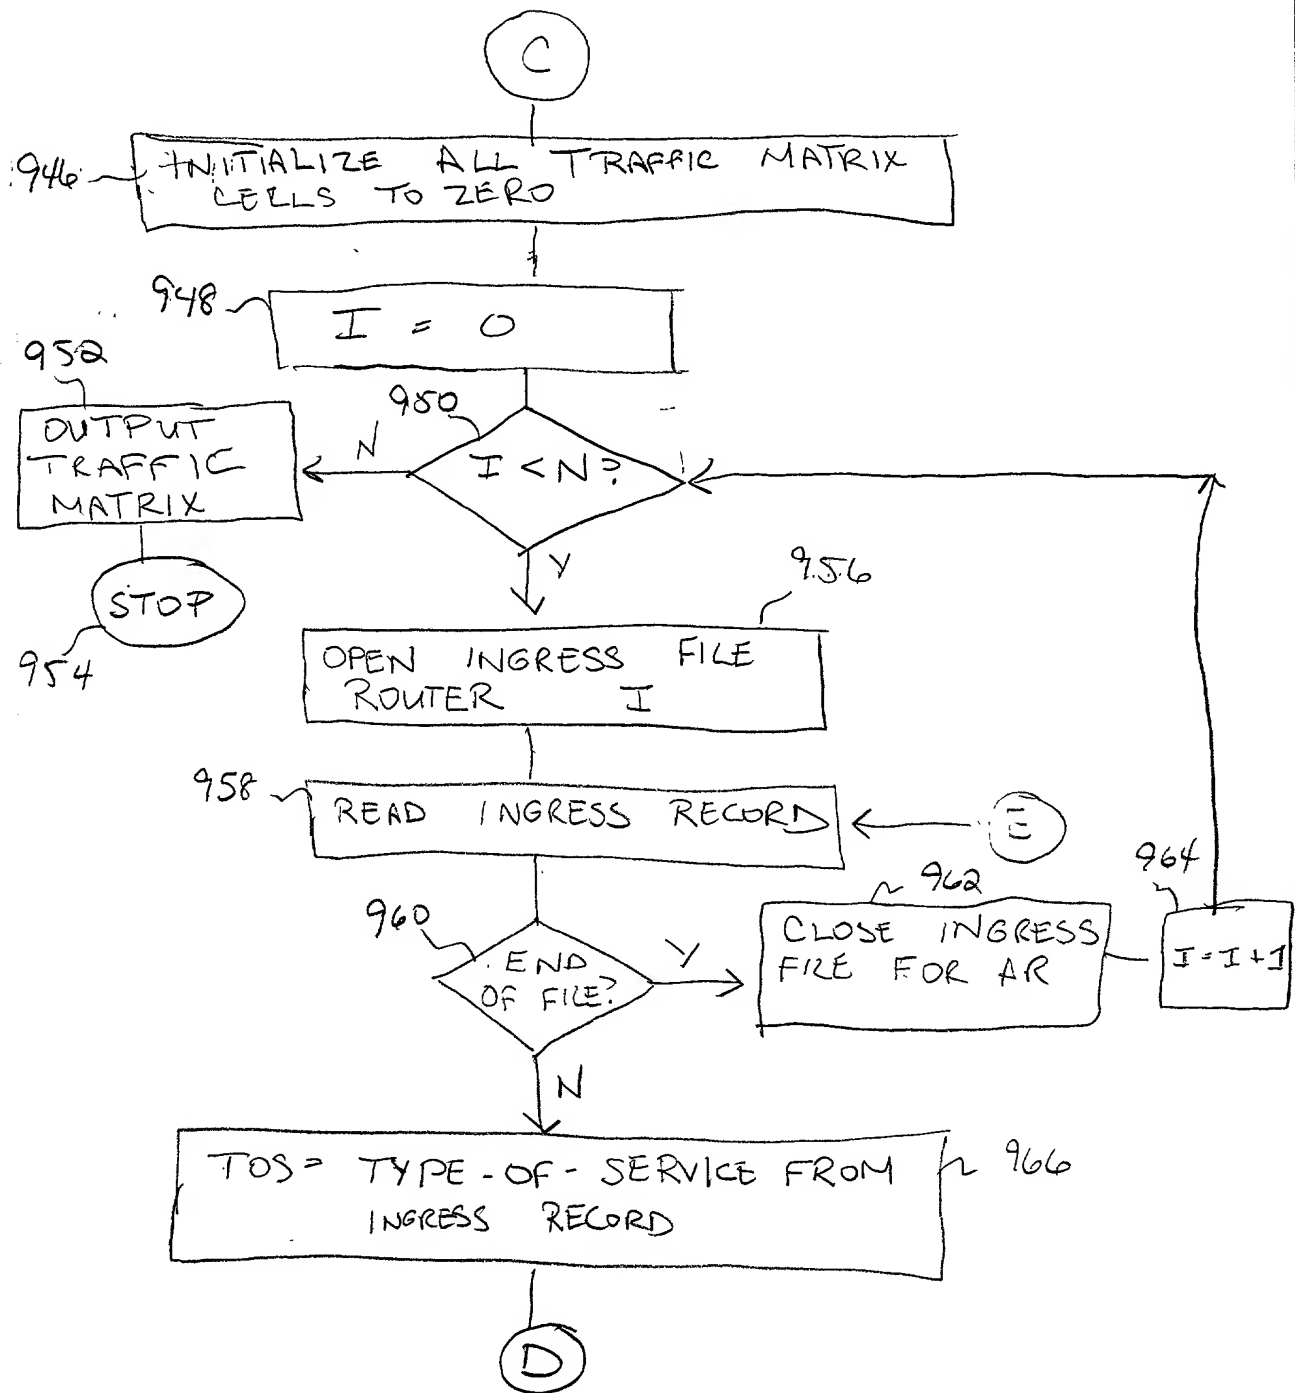 C
946
INITIALIZE ALL TRAFFIC MATRIX
CELLS TO ZERO
948
I = 0
952
OUTPUT
TRAFFIC
MATRIX
N
950
I < N?
Y
STOP
954
956
OPEN INGRESS FILE
ROUTER I
958
READ INGRESS RECORD
E
960
END
OF FILE?
Y
962
CLOSE INGRESS
FILE FOR AR
964
I = I + 1
N
TOS = TYPE-OF-SERVICE FROM
INGRESS RECORD
966
D